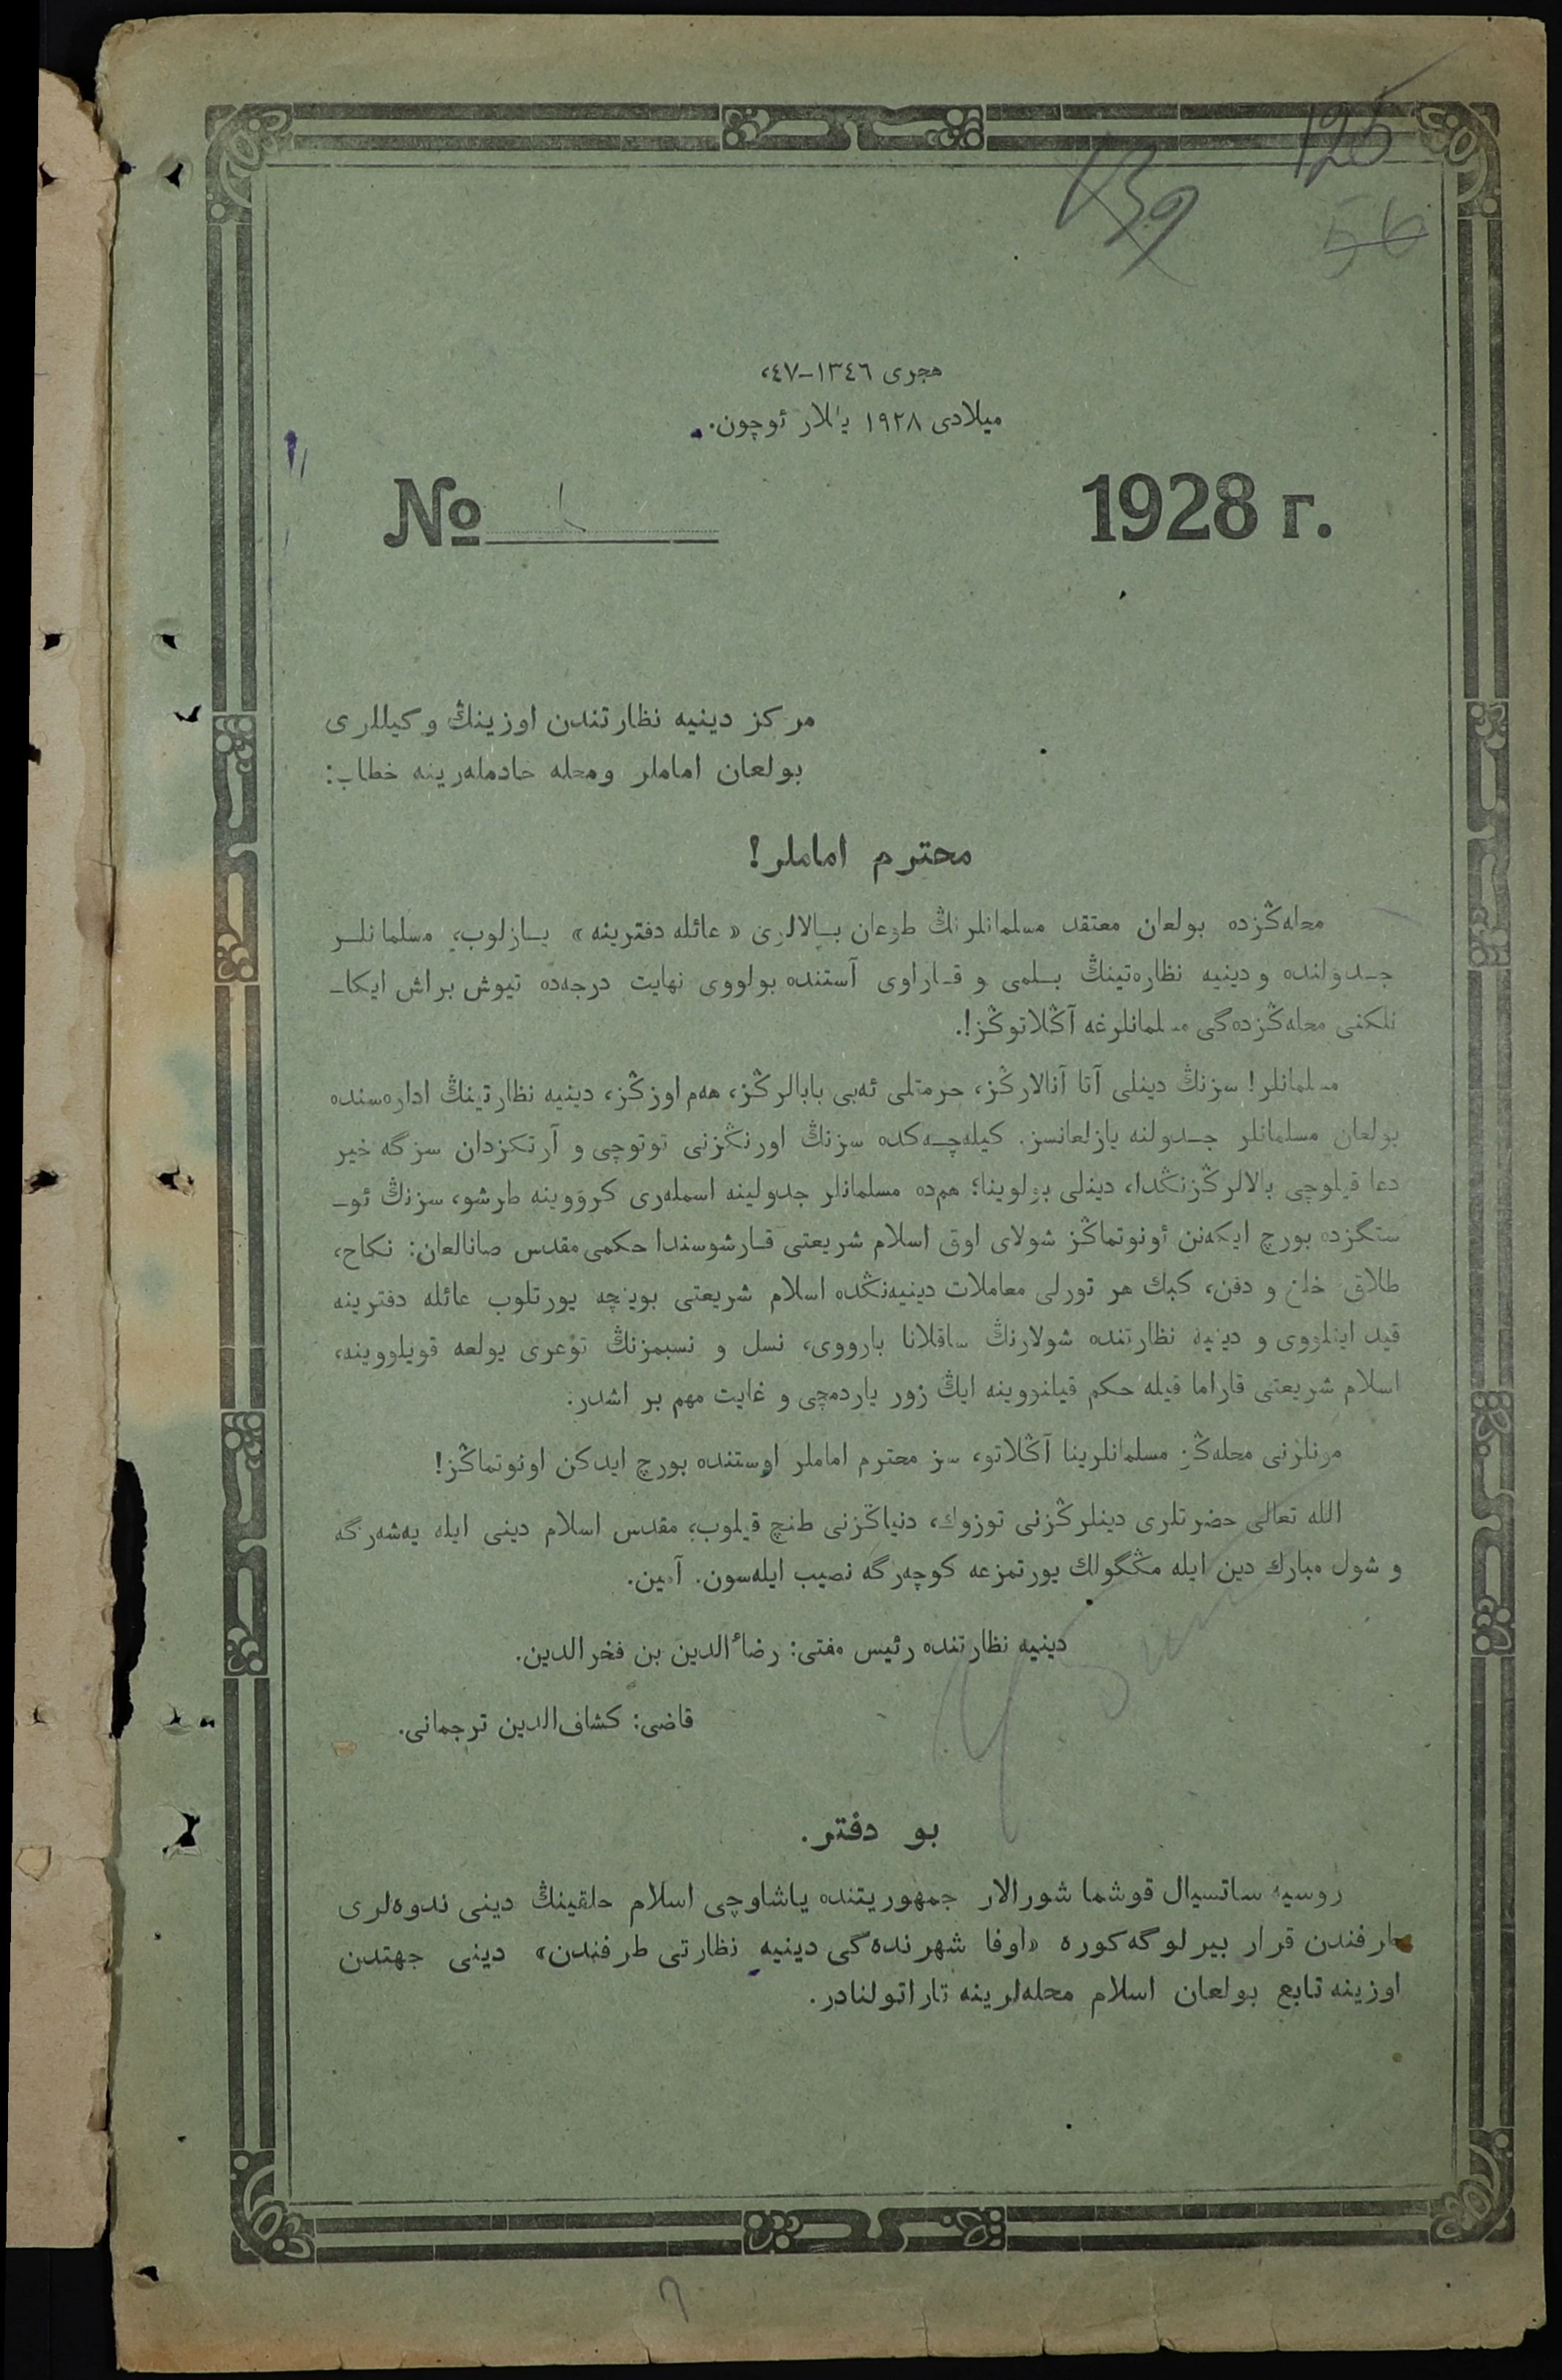 125
139
56
هجری ١٣٤٦–٤٧،
میلادی ١٩٢٨ یللار ئوچون.
№ ١
1928 г.
مركز دینیه نظارتندن اوزینڭ وكیللری
بولعان اماملر ومحله خادملەرینه خطاب:
محترم اماملر!
محلەڭزده بولعان معتقد مسلمانلرنڭ طوعان بالالری «عائله دفترینه» یازلوب، مسلمانلر
جدولنده و دینیه نظارەتینڭ بلمی و قاراوی آستنده بولووی نهایت درجەده تیوش براش ایكا–
نلكنی محلەڭزدەگی مسلمانلرغه آڭلاتوڭز!.
مسلمانلر! سزنڭ دینلی آتا آنالارڭز، حرمتلی ئەبی بابالرڭز، هەم اوزڭز، دینیه نظارتینڭ ادارەسنده
بولعان مسلمانلر جدولنه یازلعانسز. كیلەچەكده سزنڭ اورنڭزنی توتوچی و آرتكزدان سزگه خیر
دعا قیلوچی بالالرڭزنڭدا، دینلی بولوینا؛ هەمده مسلمانلر جدولینه اسملەری كرووینه طرشو، سزنڭ ئو–
ستگزده بورچ ایكەنن ئونوتماڭز شولای اوق اسلام شریعتی قارشوسندا حكمی مقدس صانالعان: نكاح،
طلاق خلع و دفن، كبك هر تورلی معاملات دینیەنڭده اسلام شریعتی بوینچه یورتلوب عائله دفترینه
قید ایتلووی و دینیه نظارتنده شولارنڭ ساقلانا بارووی، نسل و نسبمزنڭ توعری یولعه قویلووینه،
اسلام شریعتی قاراما قیله حكم قیلنووینه ایڭ زور یاردمچی و غایت مهم بر اشدر.
مونلرنی محلەڭز مسلمانلرینا آڭلاتو، سز محترم اماملر اوستنده بورچ ایدكن اونوتماڭز!
الله تعالی حضرتلری دینلرڭزنی توزوك، دنیاڭزنی طنچ قیلوب، مقدس اسلام دینی ایله یەشەرگه
و شول مبارك دین ایله مڭگولك یورتمزعه كوچەرگه نصیب ایلەسون. آمین.
دینیه نظارتنده رئیس مفتی: رضاءالدین بن فخرالدین.
قاضی: كشاف‌الدین ترجمانی.
بو دفتر.
روسیه ساتسیال قوشما شورالار جمهوریتنده یاشاوچی اسلام خلقینڭ دینی ندوەلری
طارفندن قرار بیرلوگه كوره «اوفا شهرندەگی دینیه نظارتی طرفندن» دینی جهتدن
اوزینه تابع بولعان اسلام محلەلرینه تاراتولنادر.